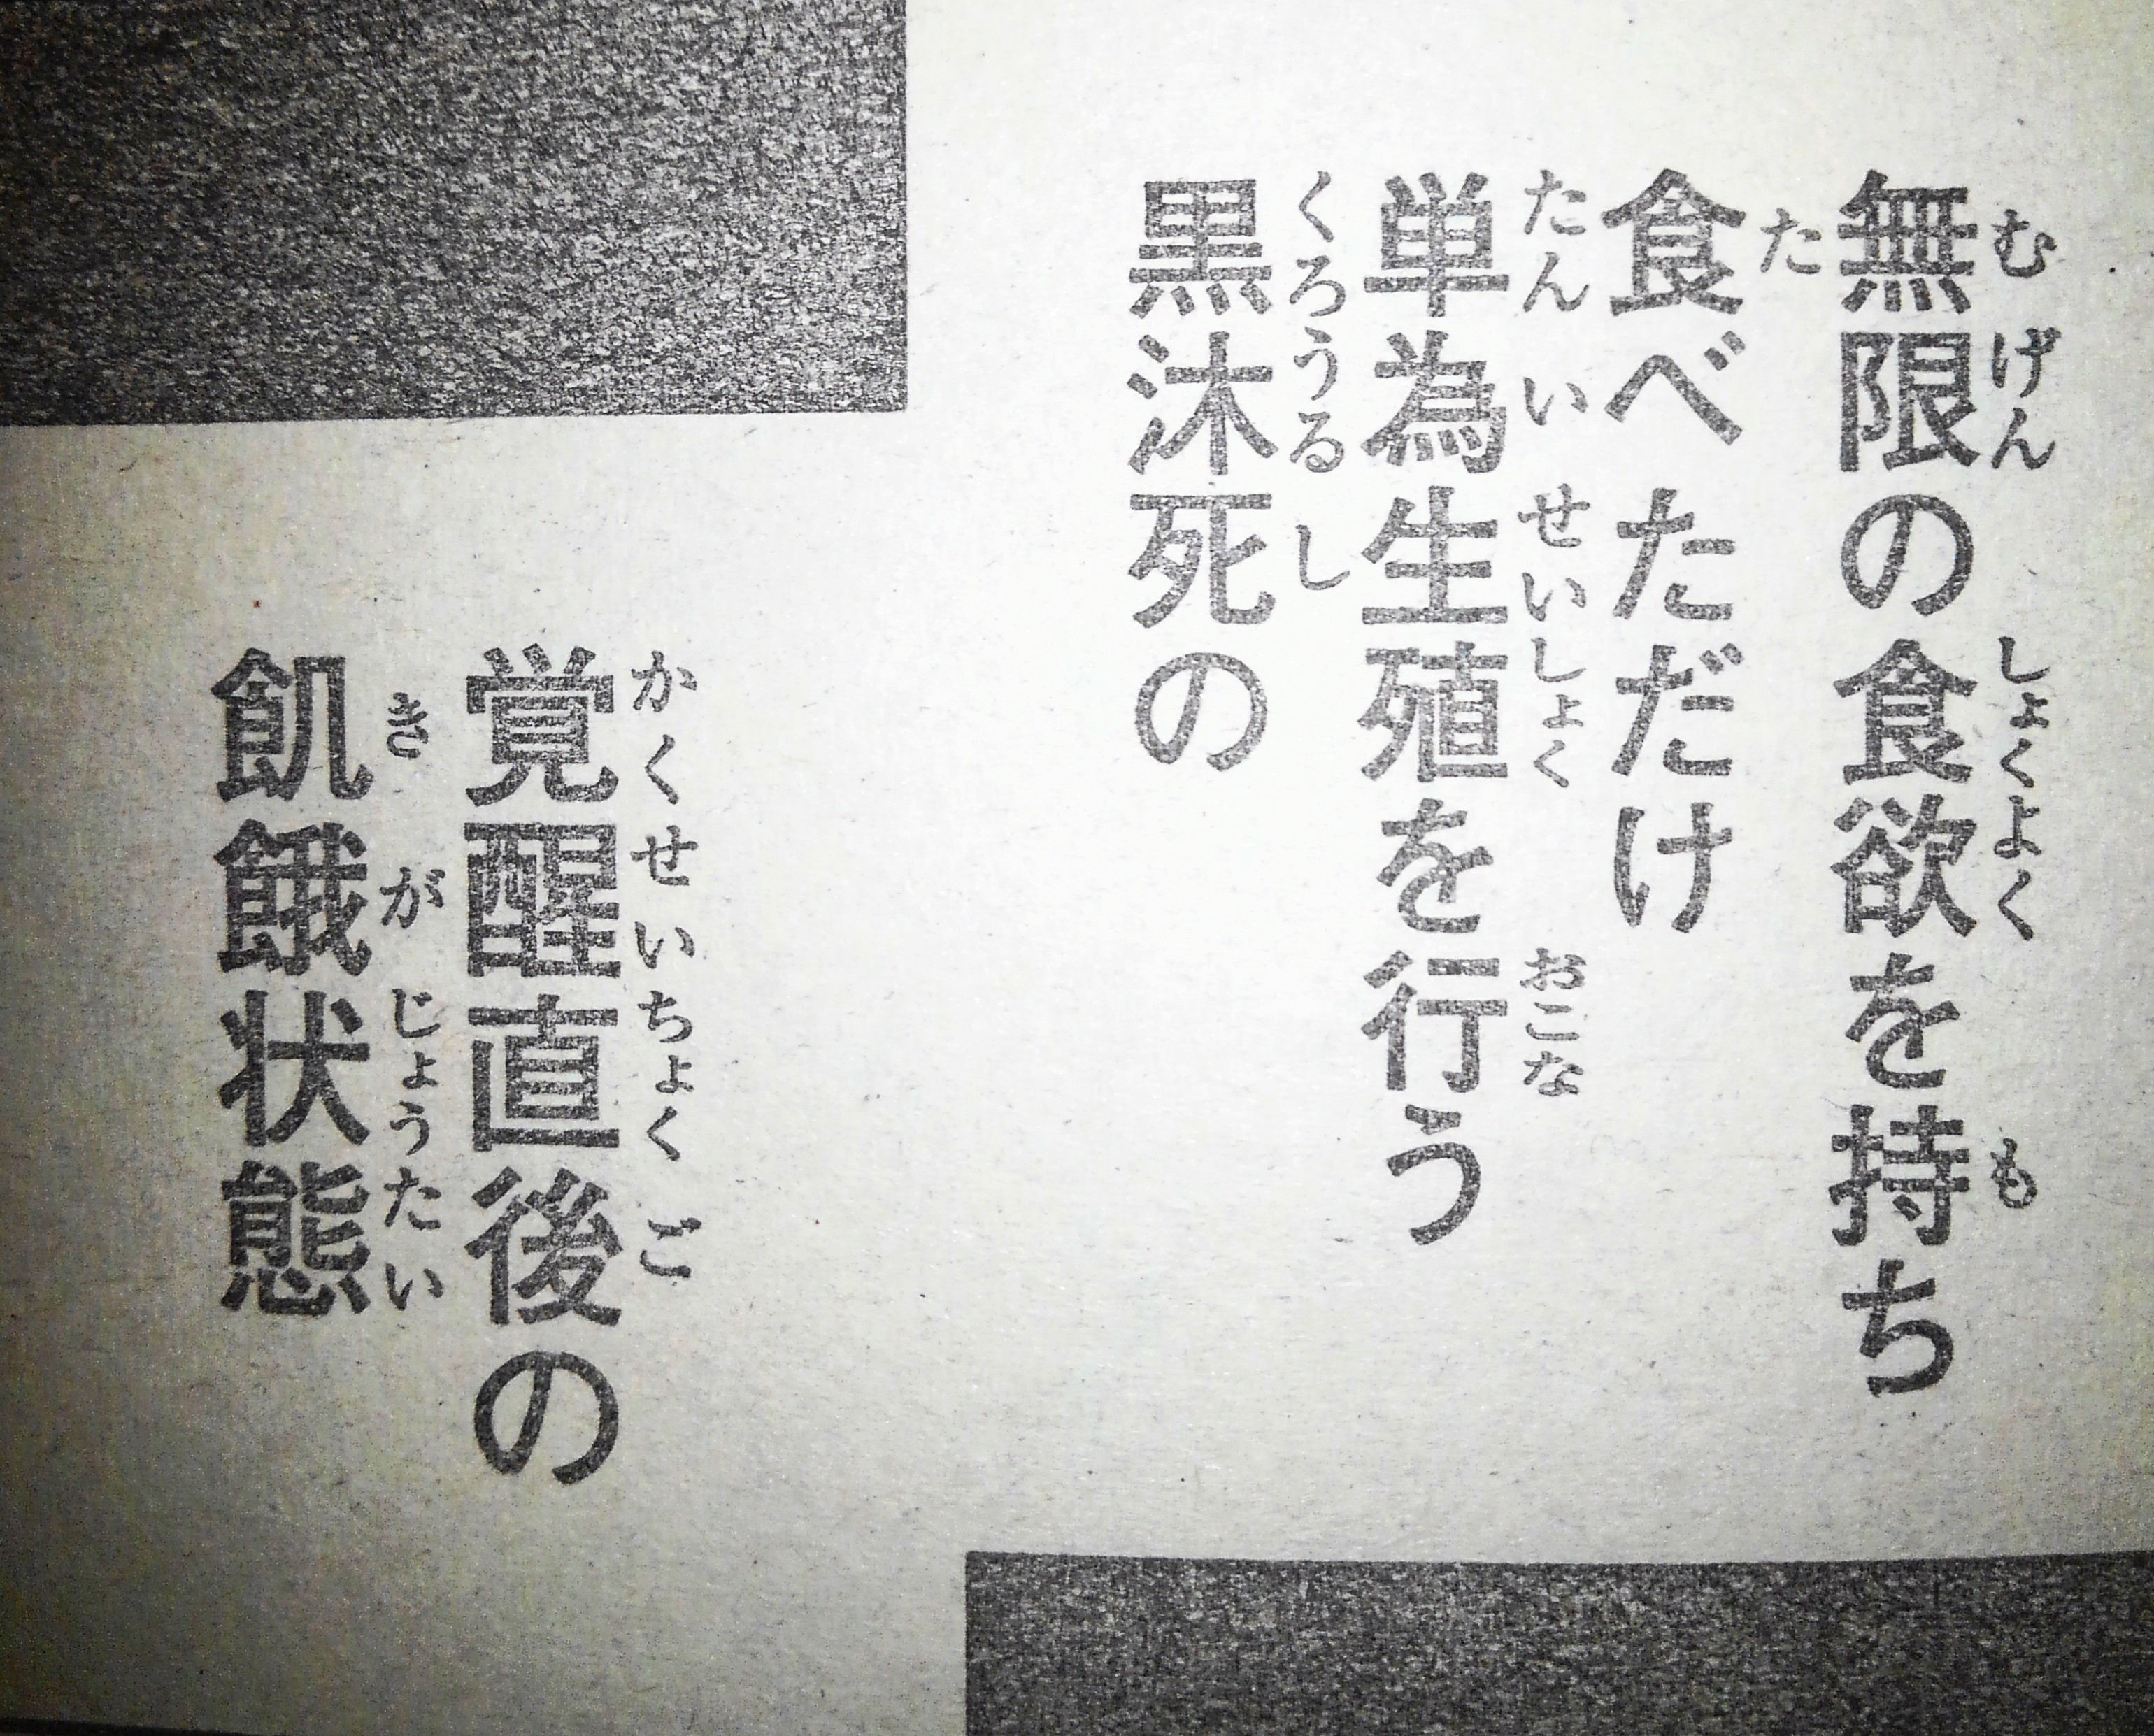 無限の食欲を持ち
食べただけ
単為生殖を行う
黒沐死の
覚醒直後の
飢餓状態